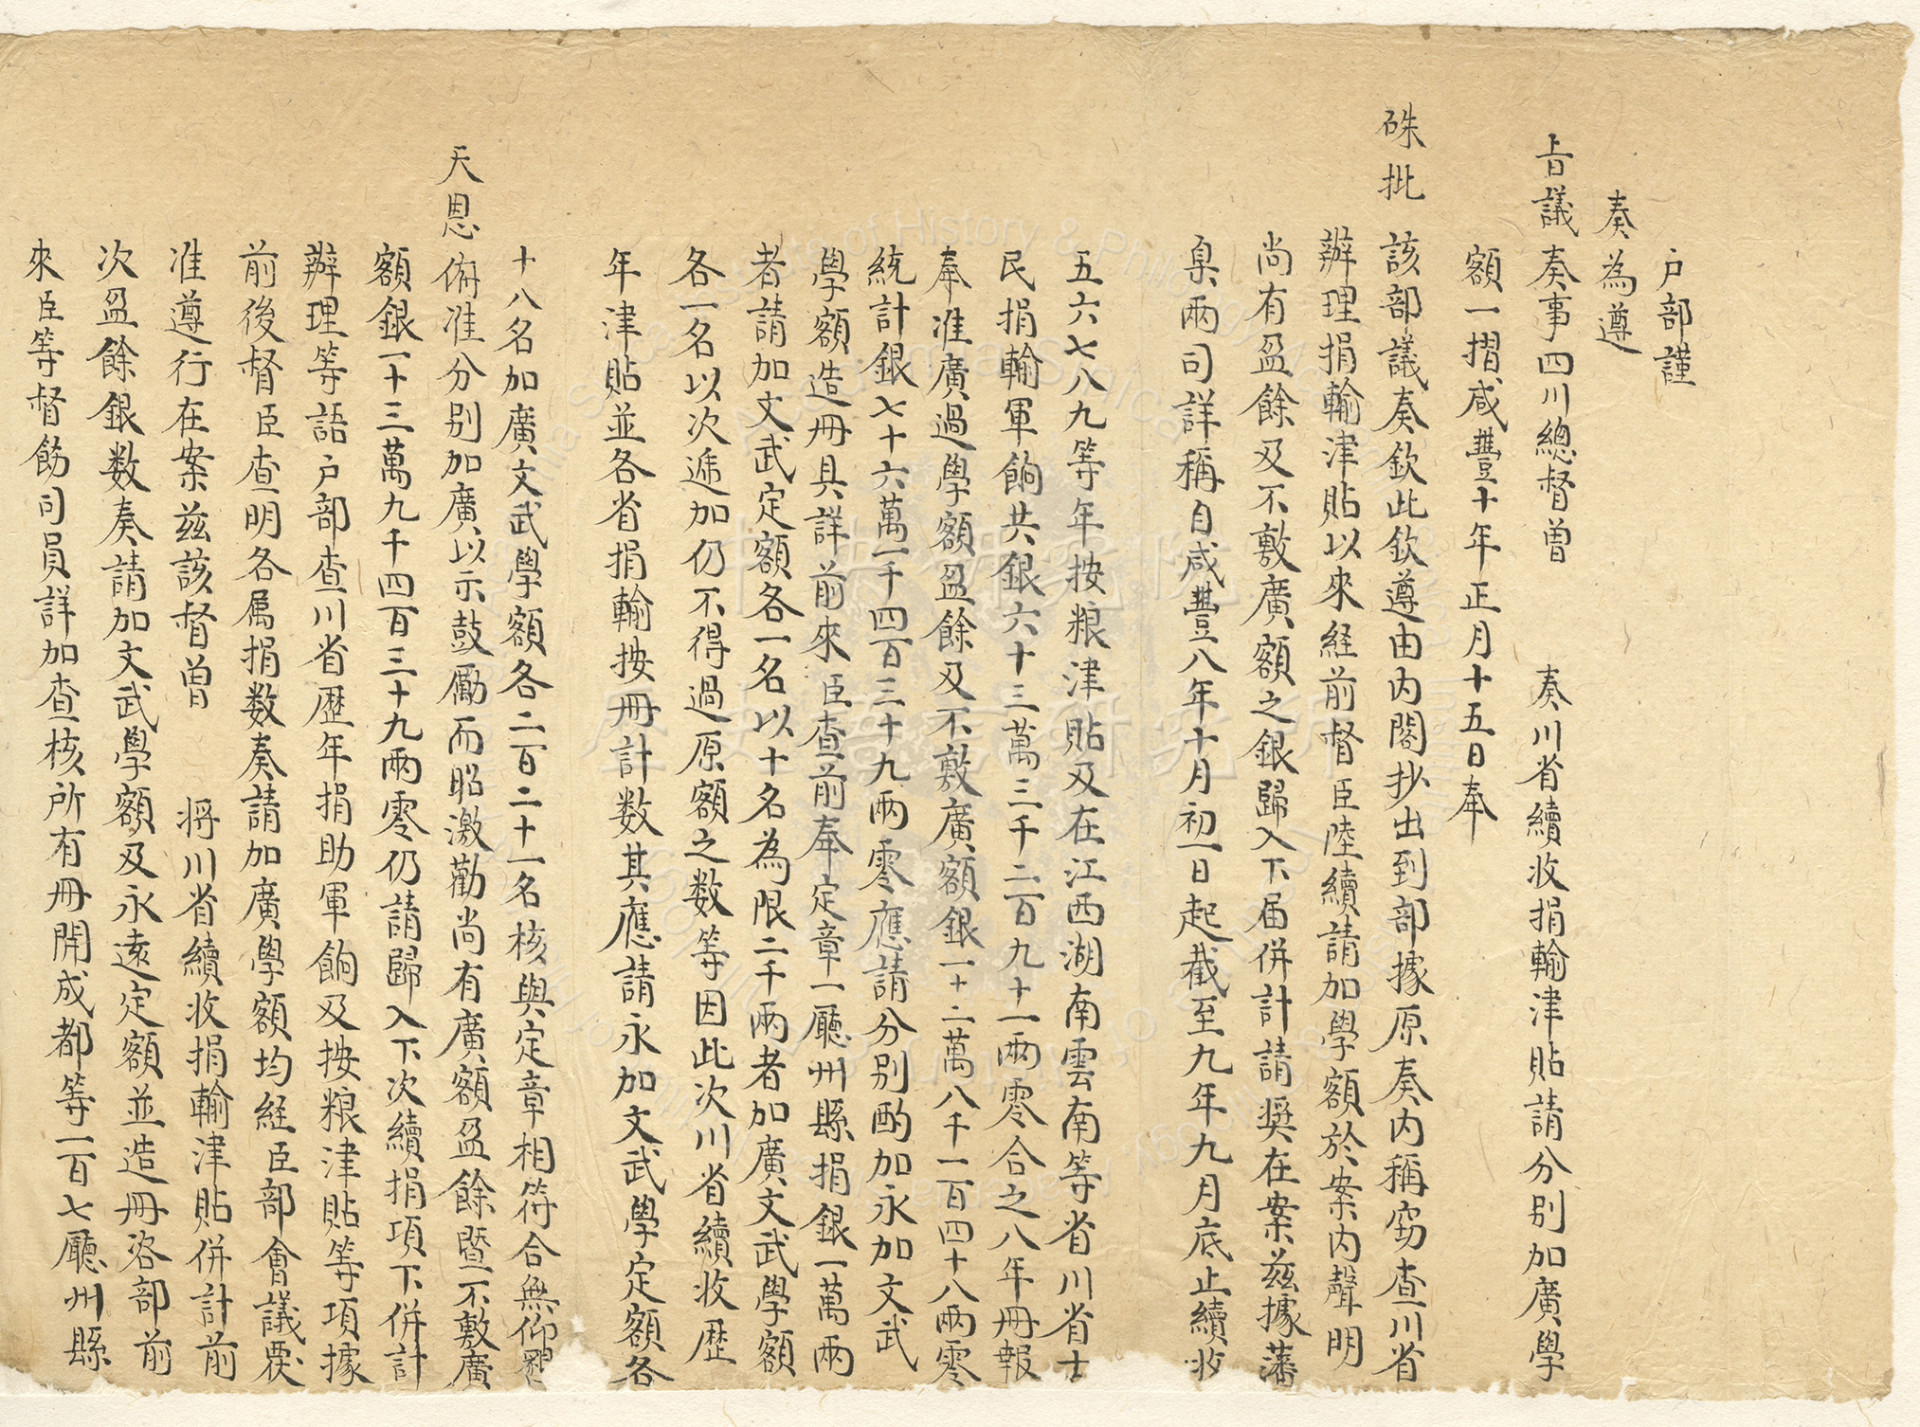 戶部謹
奏為遵
旨議奏事四川總督曾　　奏川省續收捐輸津貼請分別加廣學
額一摺咸豐十年正月十五日奉
硃批該部議奏欽此欽遵由內閣抄出到部據原奏內稱竊查川省
辦理捐輸津貼以來經前督臣陸續請加學額於案內聲明
尚有盈餘及不敷廣額之銀歸入下屆併計請奬在案茲據藩
臬兩司詳稱自咸豐八年十月初一日起截至九年九月底止續收
五六七八九等年按粮津貼及在江西湖南雲南等省川省士
民捐輸軍餉共銀六十三萬三千二百九十一兩零合之八年冊報
奉准廣過學額盈餘及不敷廣額銀一十二萬八千一百四十八兩零
統計銀七十六萬一千四百三十九兩零應請分別酌加永加文武
學額造冊具詳前來臣查前奉定章一廳州縣捐銀一萬兩
者請加文武定額各一名以十名為限二千兩者加廣文武學額
各一名以次遞加仍不得過原額之数等因此次川省續收歷
年津貼並各省捐輸按冊計数其應請永加文武學定額各
十八名加廣文武學額各二百二十一名核與定章相符合無仰懇
天恩俯准分別加廣以示鼓勵而昭激勸尚有廣額盈餘暨不敷廣
額銀一十三萬九千四百三十九兩零仍請歸入下次續捐項下併計
辦理等語戶部查川省歷年捐助軍餉及按粮津貼等項據
前後督臣查明各属捐数奏請加廣學額均經臣部會議覆
准遵行在案茲該督曾　　將川省續收捐輸津貼併計前
次盈餘銀数奏請加文武學額及永遠定額並造冊咨部前
來臣等督飭司員詳加查核所有冊開成都等一百七廳州縣